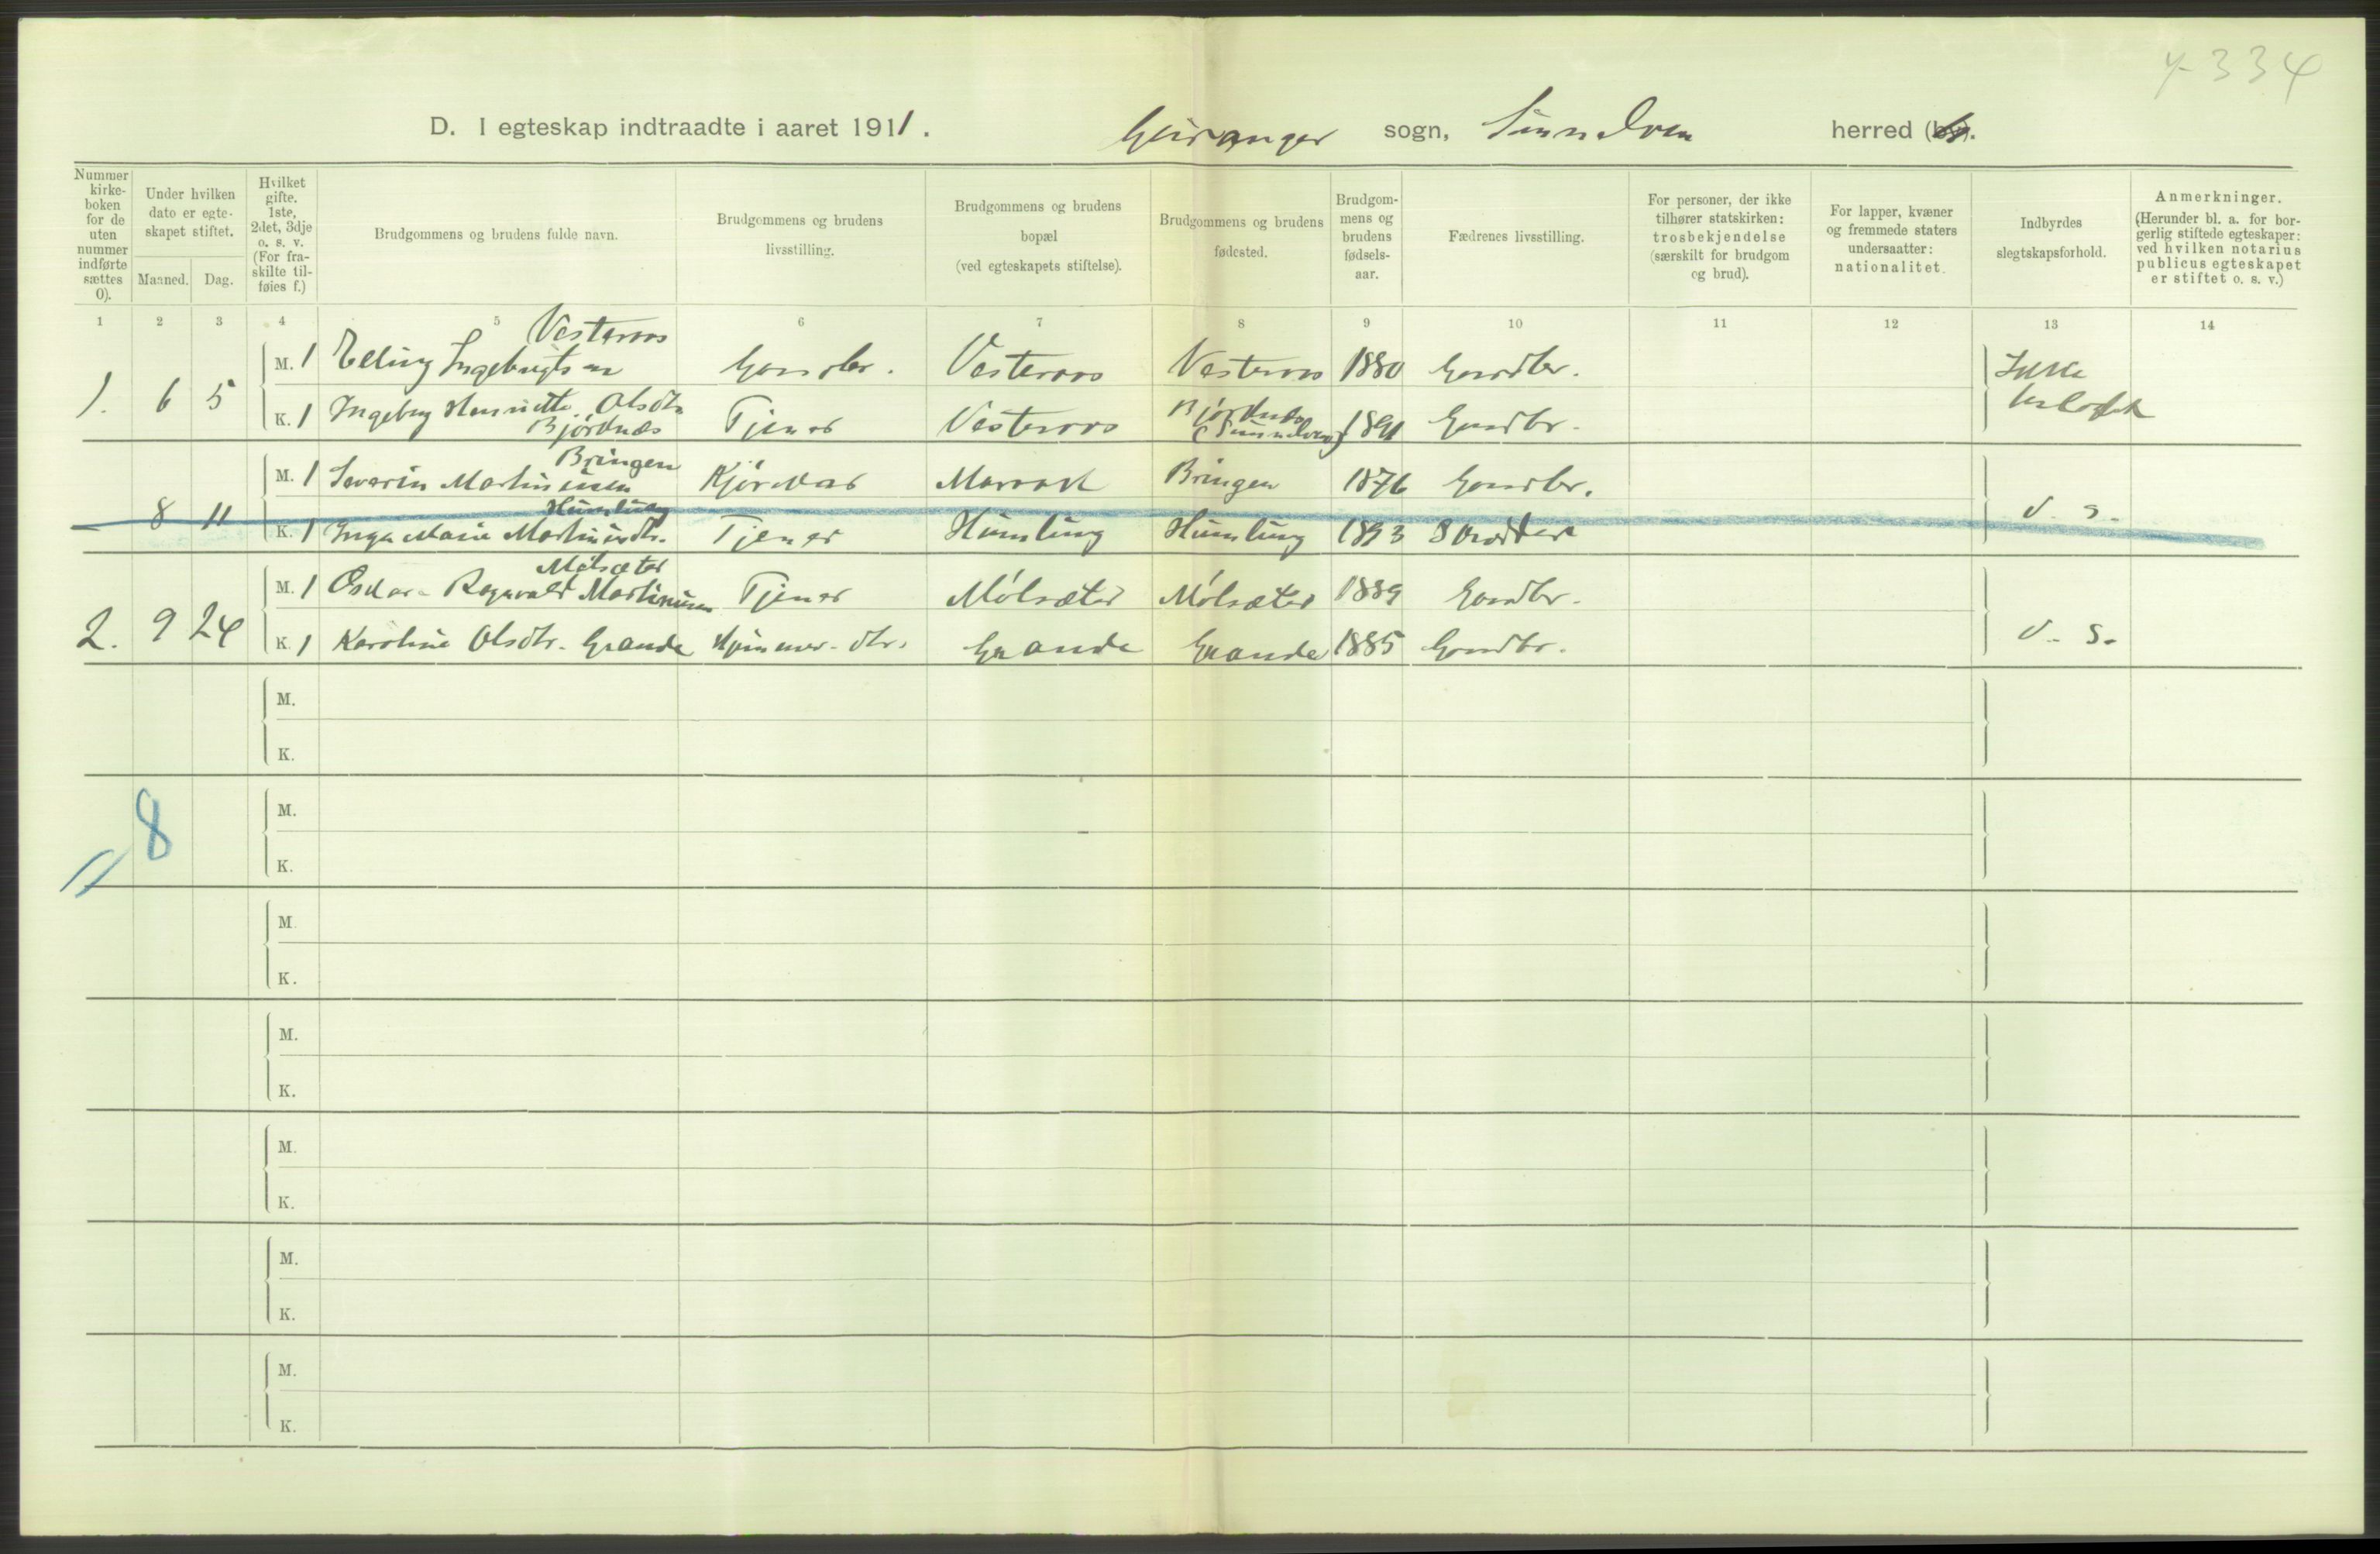 4-334
D. I egteskap indtraadte i aaret 1911. Geiranger sogn, Sunnelven herred (by).
Nummer kirkeboken for de uten nummer indførte sættes 0).
Under hvilken dato er egteskapet stiftet.
Maaned. Dag.
Hvilket gifte. 1ste, 2det, 3dje o. s. v. (For fraskilte tilføies f.)
Brudgommens og brudens fulde navn.
Brudgommens og brudens livsstilling.
Brudgommens og brudens bopæl (ved egteskapets stiftelse).
Brudgommens og brudens fødested.
Brudgommens og brudens fødselsaar.
Fædrenes livsstilling.
For personer, der ikke tilhører statskirken: trosbekjendelse (særskilt for brudgom og brud).
For lapper, kvæner og fremmede staters undersaatter: nationalitet.
Indbyrdes slegtskapsforhold.
Anmerkninger. (Herunder bl. a. for borgerlig stiftede egteskaper: ved hvilken notarius publicus egteskapet er stiftet o. s. v.)
1 2 3 4 5 6 7 8 9 10 11 12 13 14
1. 6 5 M. 1 Elling Ingebrigtsen Vesteraas Gaardbr. Vesteraas Vesteraas 1880 Gaardbr. Ikke beslegtet
K. 1 Ingeborg Henriette Olsdtr. Bjørdnæs Tjener Vesteraas Bjørdnæs (Sunnelven) 1891 Gaardbr.
— 8 11 M. 1 Severin Martinussen Bringen Kjørekar Maraak Bringen 1876 Gaardbr. d. s.
K. 1 Inga Marie Martinusdtr. Humlung Tjener Humlung Humlung 1893 Skrædder
2. 9 24 M. 1 Oskar Ragnvald Martinusen Mølsæter Tjener Mølsæter Mølsæter 1889 Gaardbr. d. s.
K. 1 Karoline Olsdtr. Grande Hjemmev. dtr. Grande Grande 1885 Gaardbr.
M.
K.
M.
8
11
K.
M.
K.
M.
K.
M.
K.
M.
K.
M.
K.